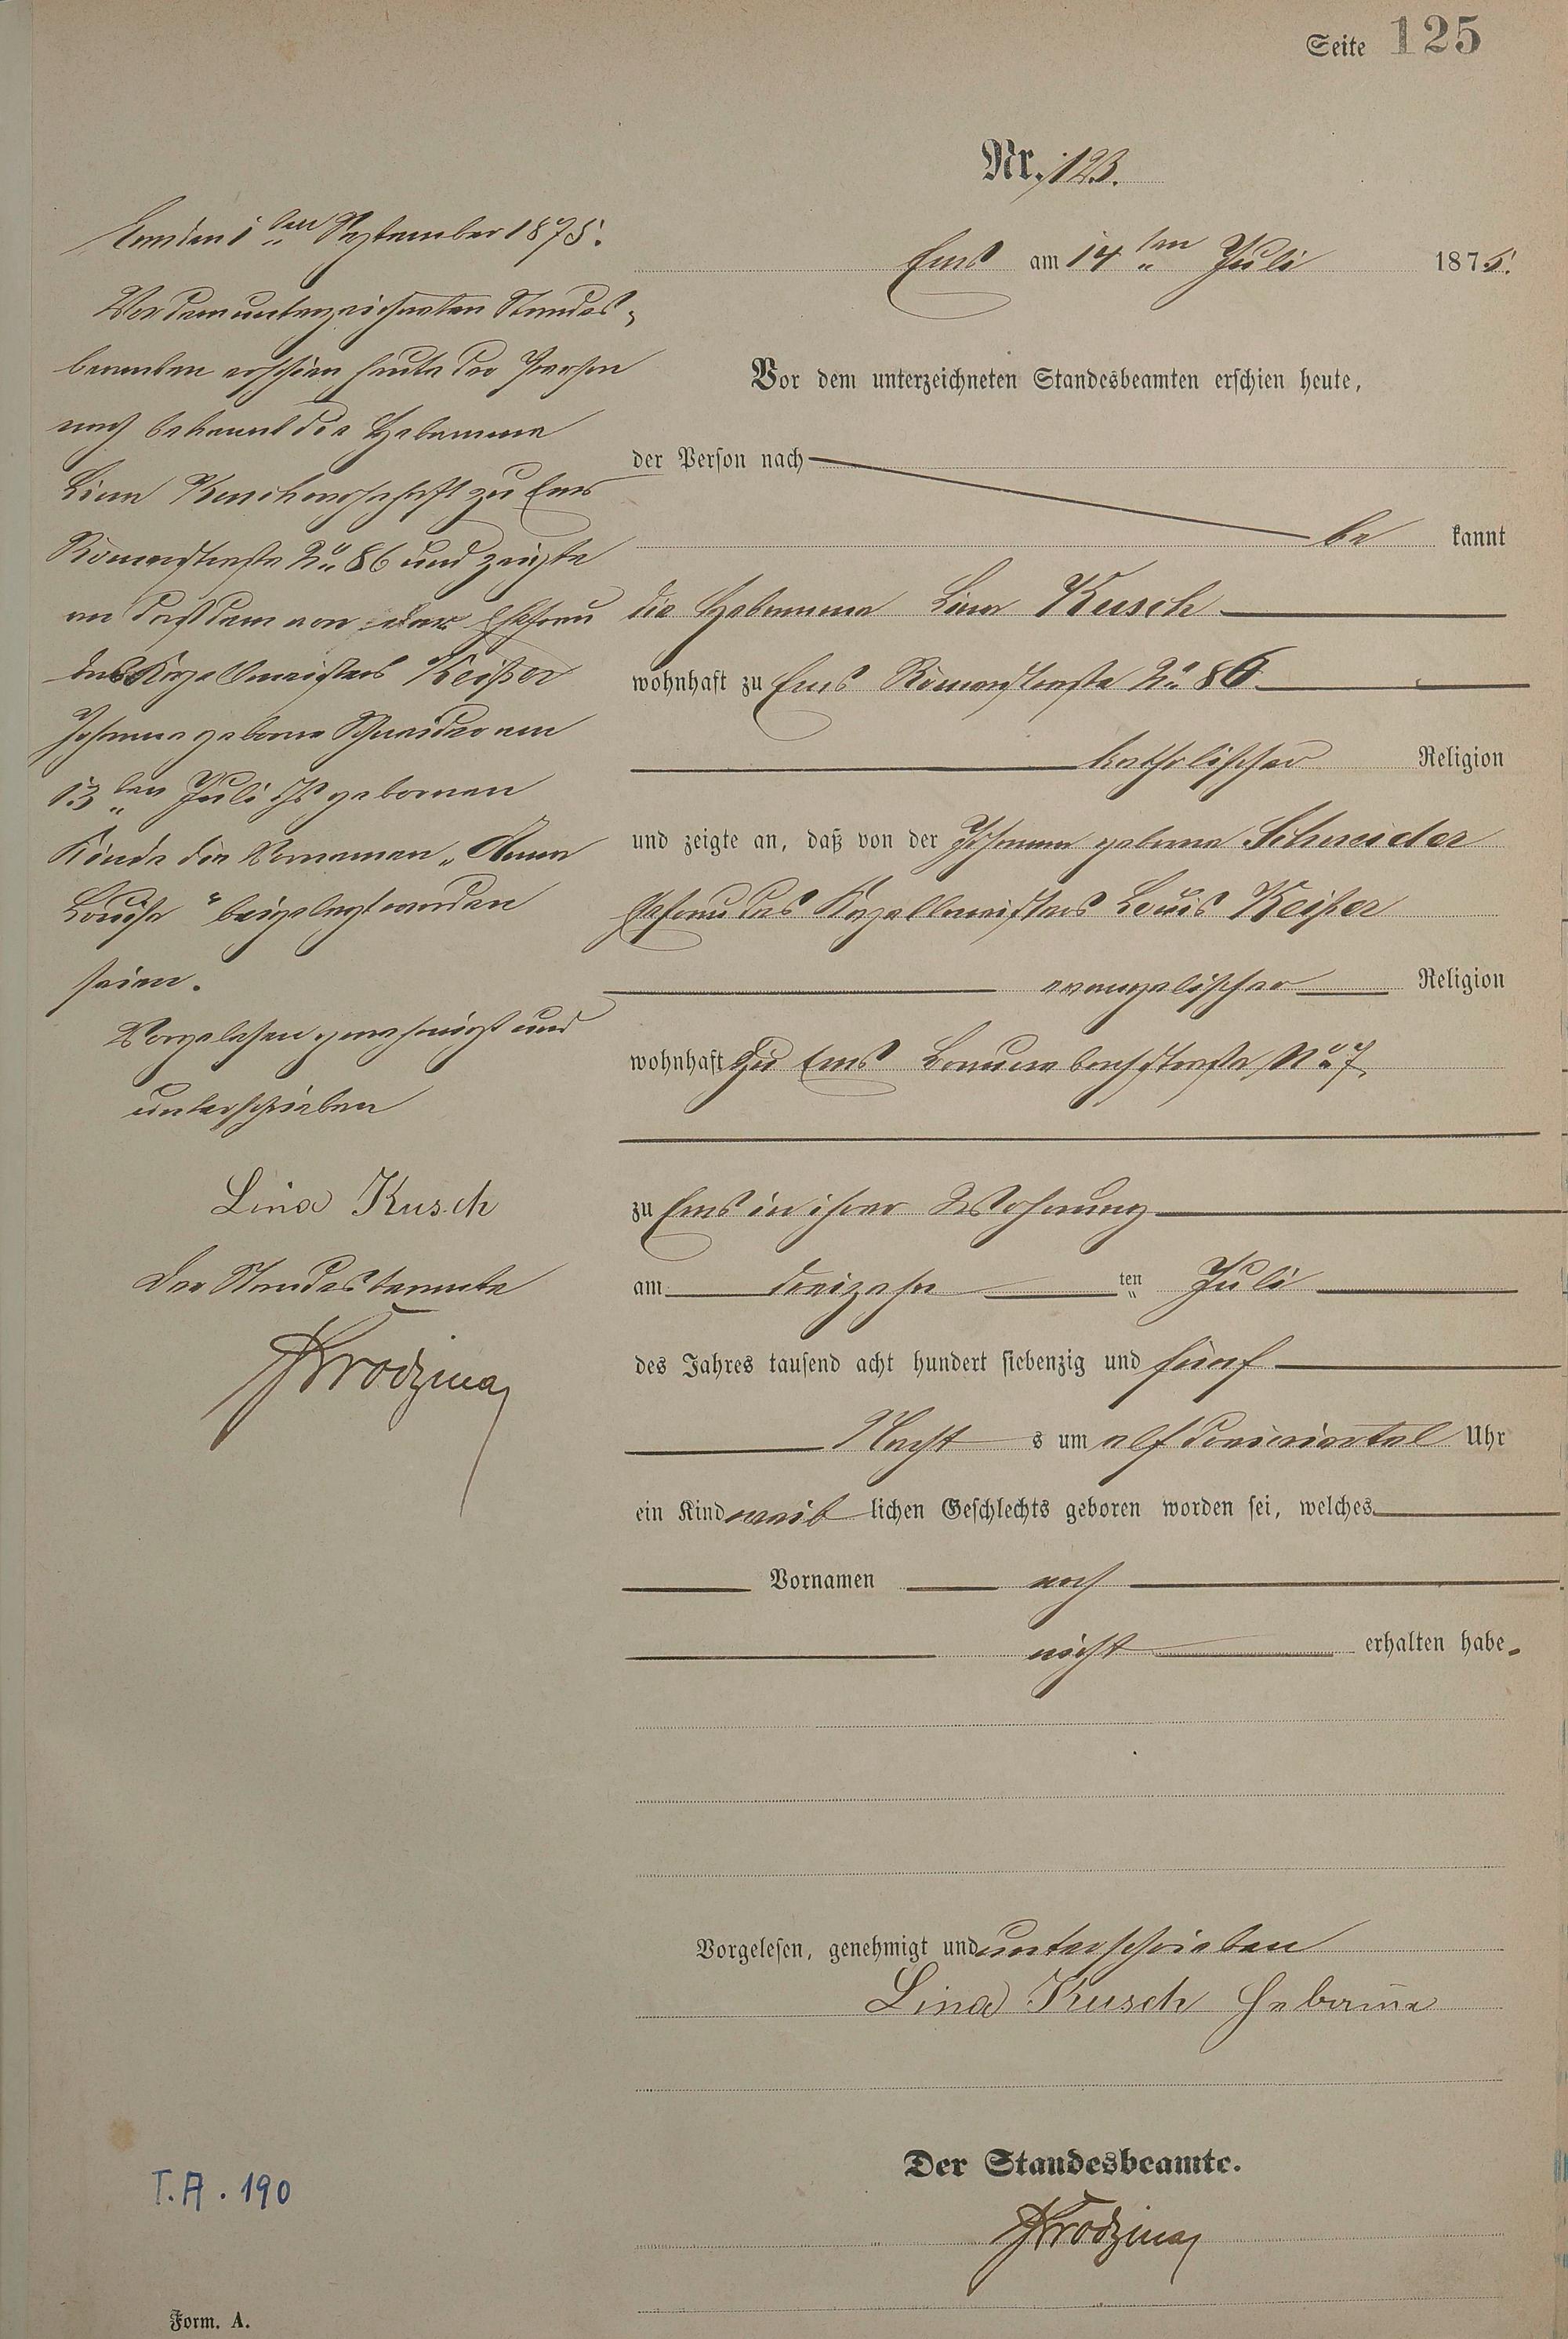 Seite 125
Nr. 123.
Ems den 1ten September 1875.
Vor dem unterzeichneten Standes-
beamten erschien heute der Person
nach bekannt die Hebamme
Lina Kusch wohnhaft zu Ems
Römerstraße No 86 und zeigte
an daß dem von der Ehefrau
des Kapellmeisters Keißer
Johanna geborne Schneider am
13ten Juli geborenen
Kinde die Vornamen „Anna
Louise" beigelegt worden
seien.
Vorgelesen genehmigt und
unterschrieben
Lina Kusch
Der Standesbeamte
Ems am 14ten Juli 1875.
Vor dem unterzeichneten Standesbeamten erschien heute,
der Person nach
be kannt
die Hebamme Lina Kusch
wohnhaft zu Ems Römerstraße No 86
katholischer Religion
und zeigte an, daß von der Johanna geborne Schneider
Ehefrau des Kapellmeisters Louis Keißer
evangelischer Religion
wohnhaft zu Ems No 7.
zu Ems in ihrer Wohnung
am dreizehn ten Juli
des Jahres tausend acht hundert siebenzig und fünf
Nacht s um elf dreiviertel Uhr
ein Kind weib lichen Geschlechts geboren worden sei, welches
Vornamen noch
nicht erhalten habe.
Vorgelesen, genehmigt und unterschrieben
Lina Kusch Hebamme
Der Standesbeamte.
T.A. 190
Form. A.